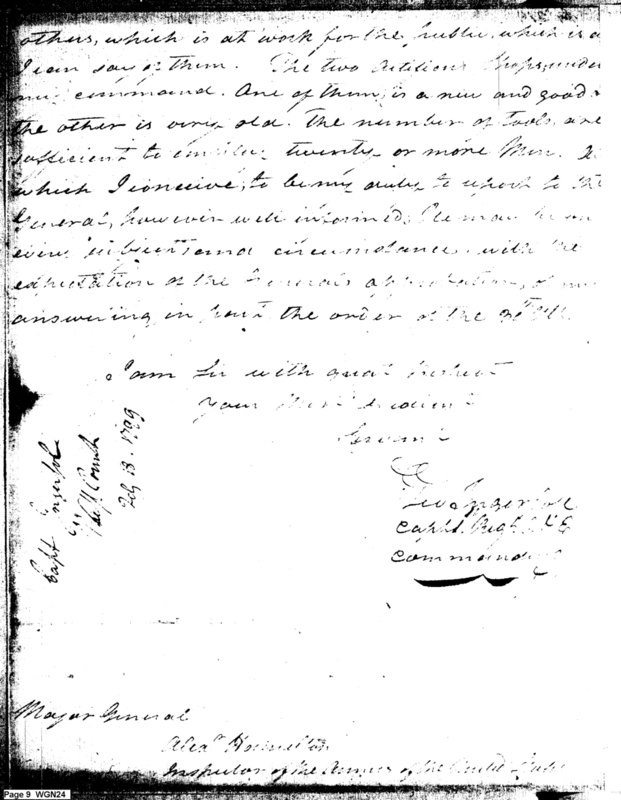 others, which is at work for the public, which is a
I can say of them. The two Artificers Shops, under
my command. One of them, is a new and good &
the other is very old. The number of Tools, are
sufficient to employ twenty or more Men.
which I conceive, to be my duty to report to the
General, however well informed, He may be on
every circumstance, with the
expectation of the Generals approbation, of my
answering in part the order of the 30th Ult
I am Sir with great Respect
Your Most Obedient
Servant
Geo Ingersoll
Capt. Regt A & E
Commanding
Capt Ingersoll
Feby 13. 1799
Major General
Alexr Hamilton
Inspector of the Armies of the United States
Page 9 WGN24